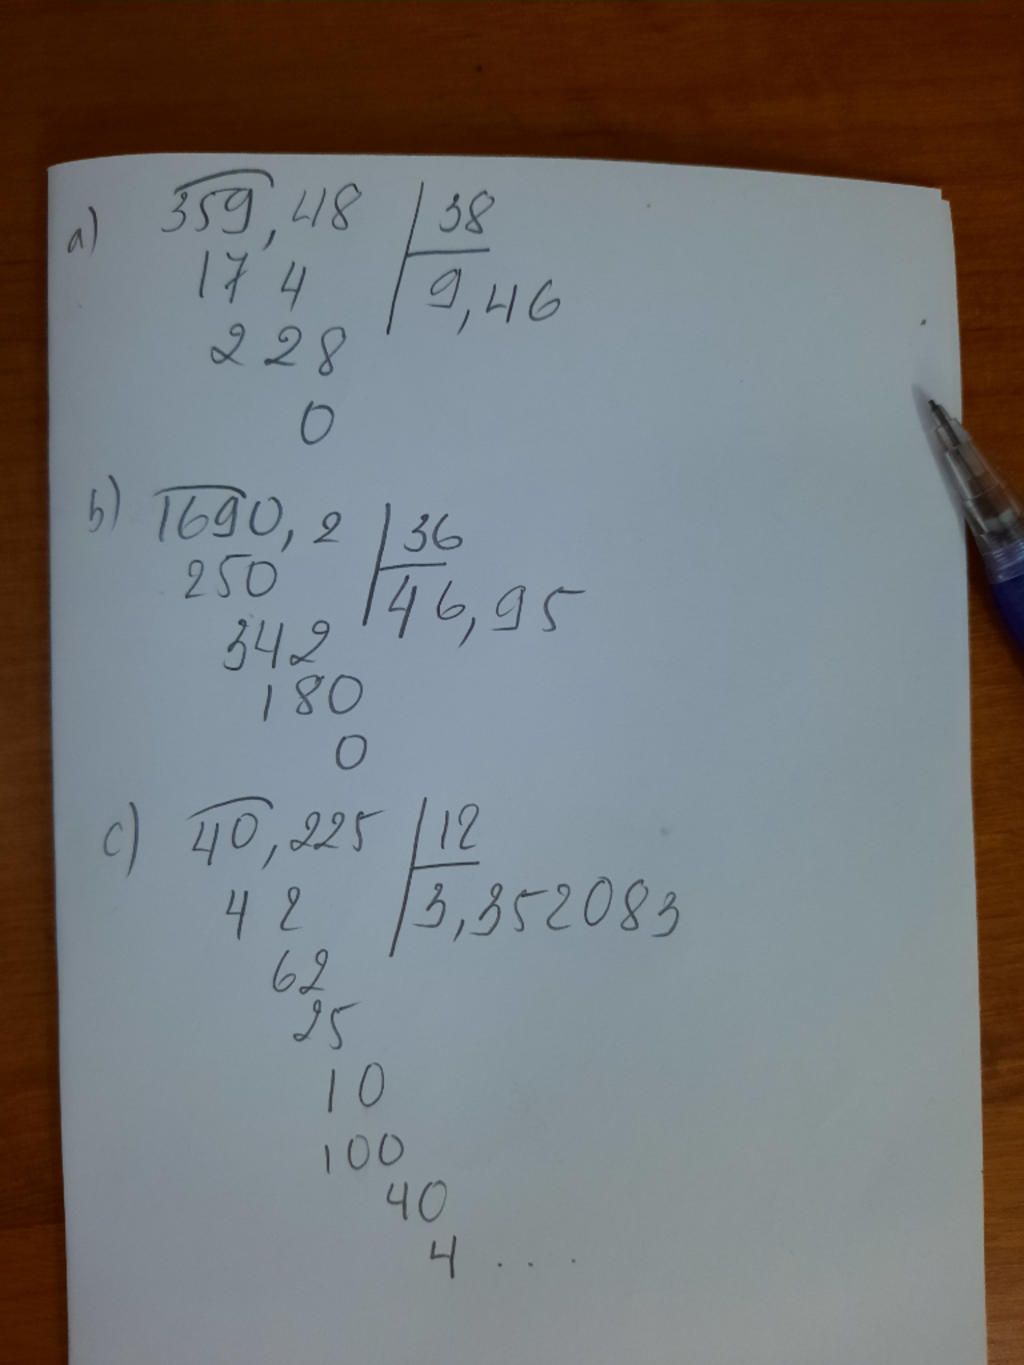 a) 359,48 38
17 4 9,46
228
0
b) 1690,2 36
250 46,95
342
180
0
c) 40,225 12
4 2 3,352083
62
25
10
100
40
4 ....